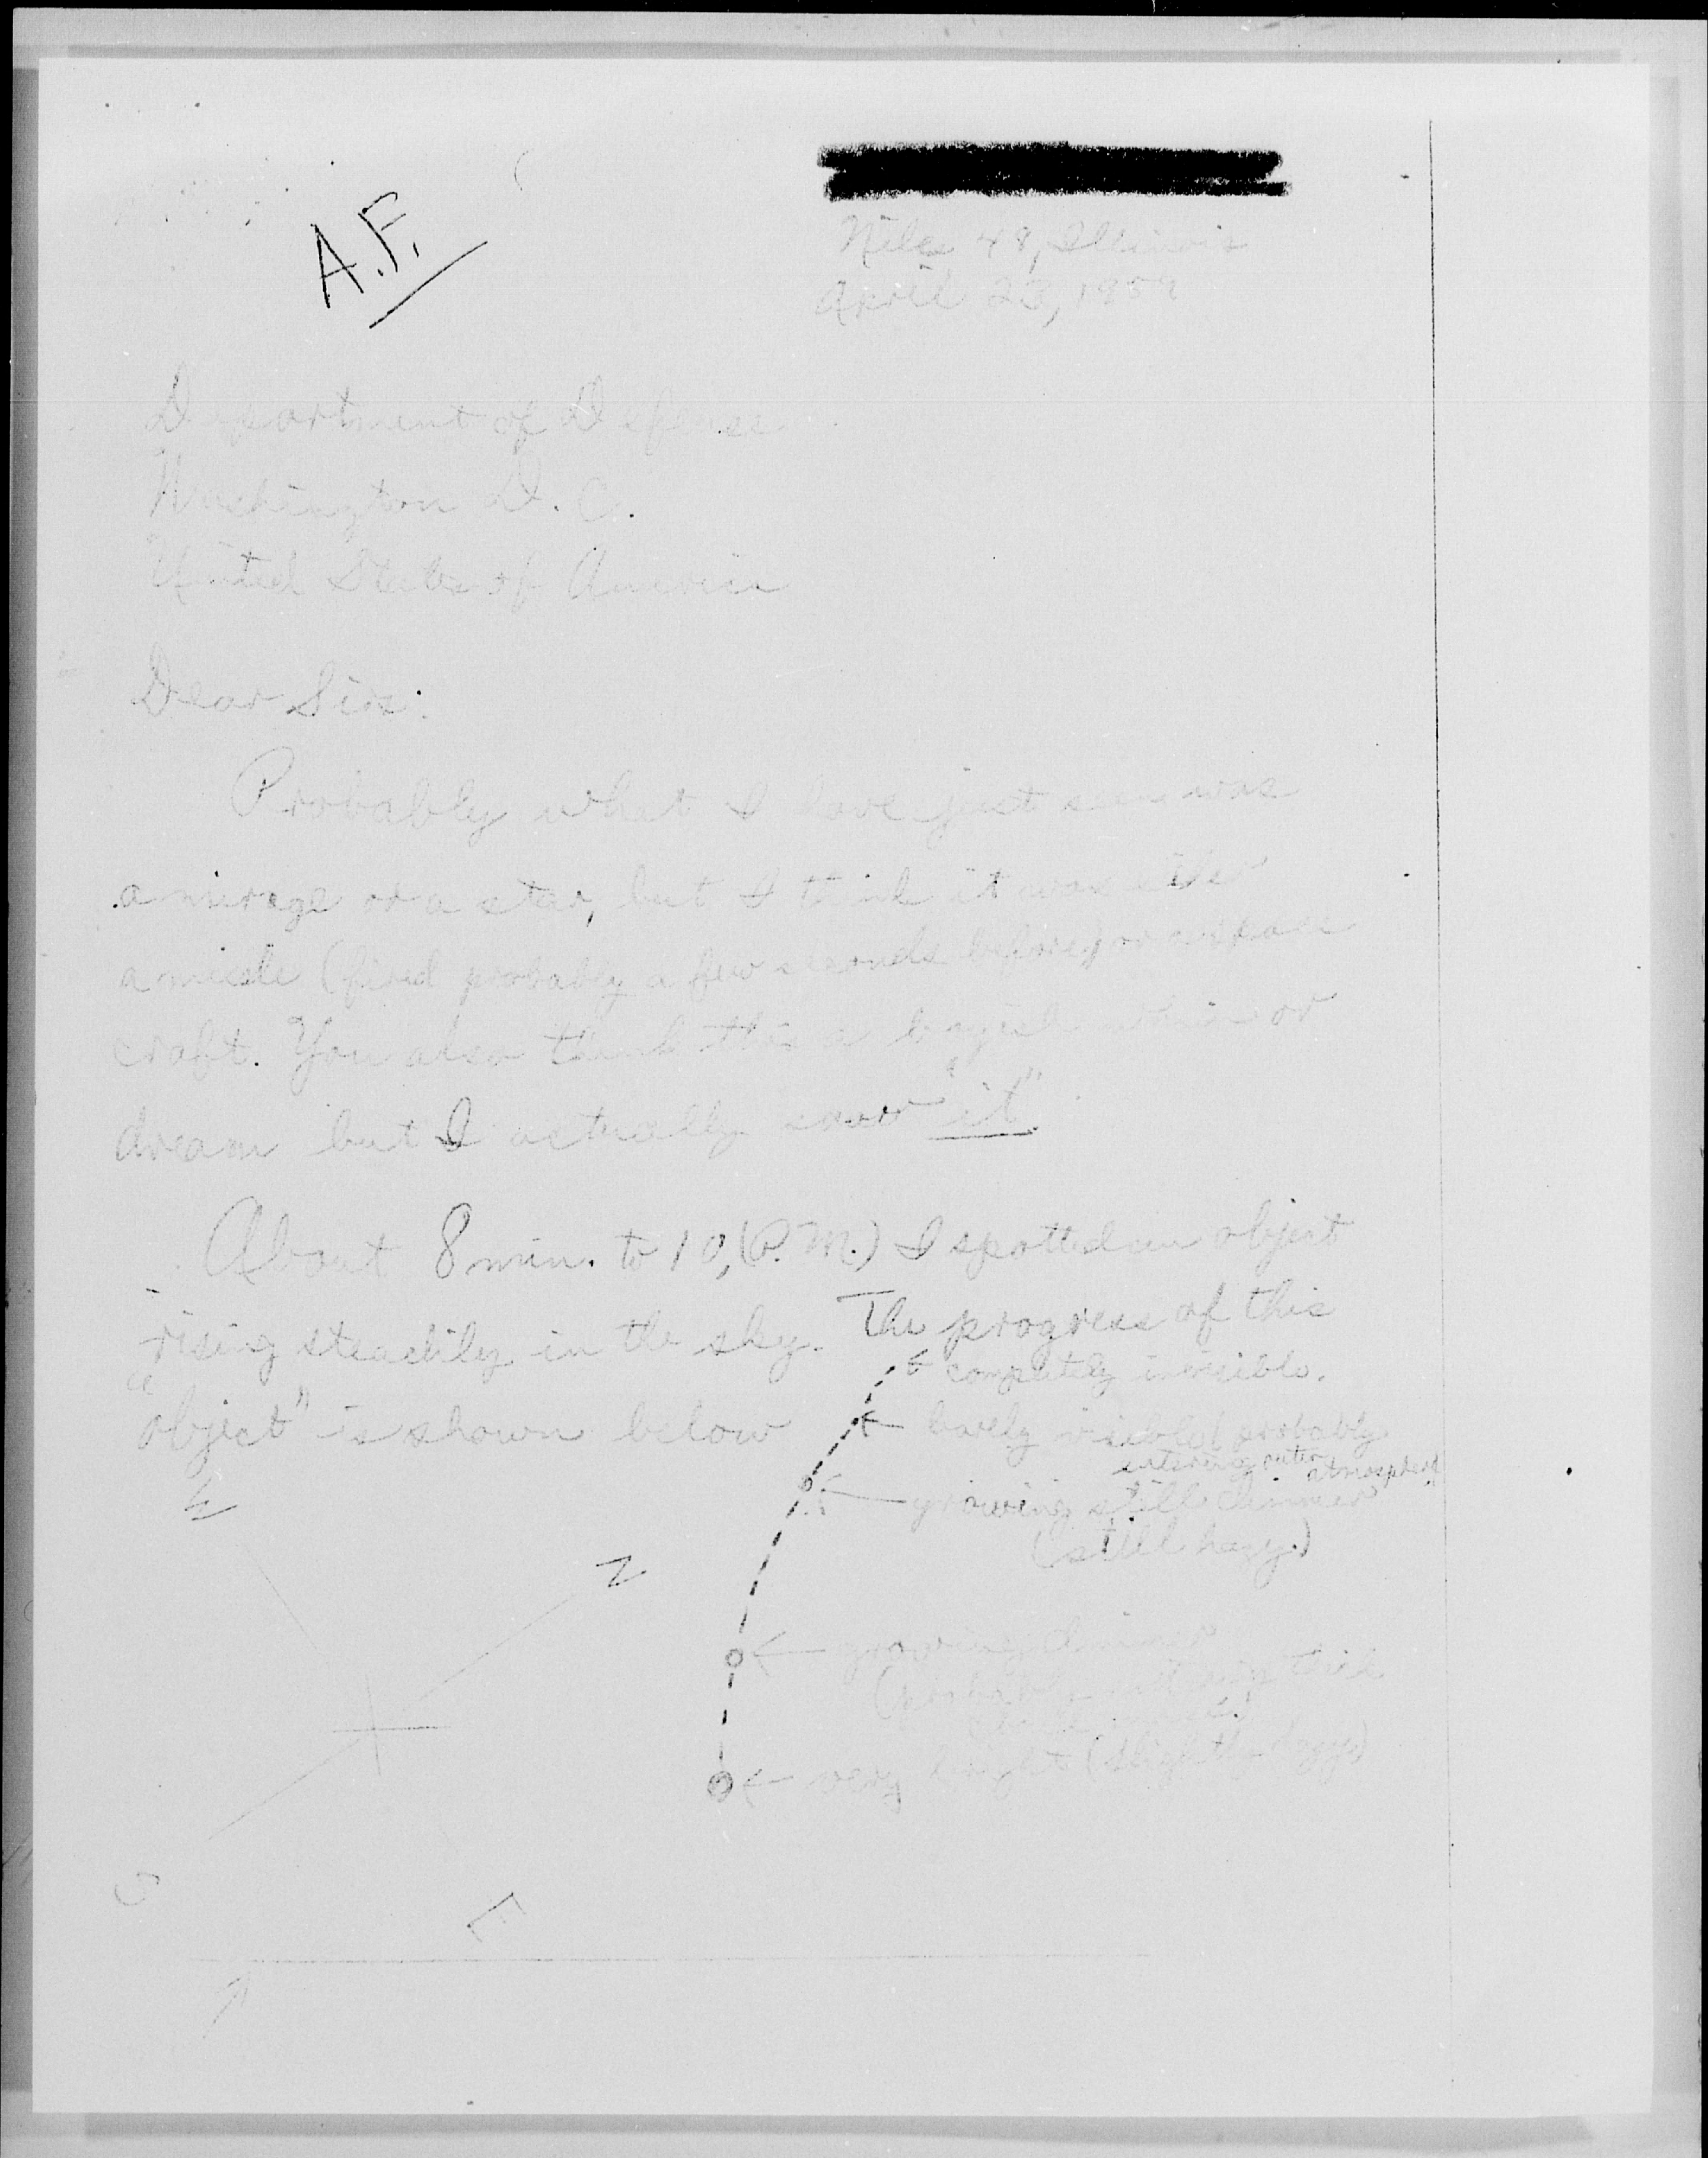 A.F.
Niles 48, Illinois
April 23, 1959
Department of Defense
Washington D.C.
United States of America
Dear Sir:
Probably what I have just seen was
a mirage or a star, but I think it was
a missle (fired probably a few seconds before) or a space
craft. You also think this a boyish or
dream but I actually saw "it".
About 8 min. to 10, (P.M.) I spotted an object
rising steadily in the sky. The progress of this
"object" is shown below
completely invisible.
barely visible (probably
entering outer atmosphere
growing still dimmer
(still hazy.)
growing dimmer
(probably
very bright (slightly hazy)
W
N
S
E